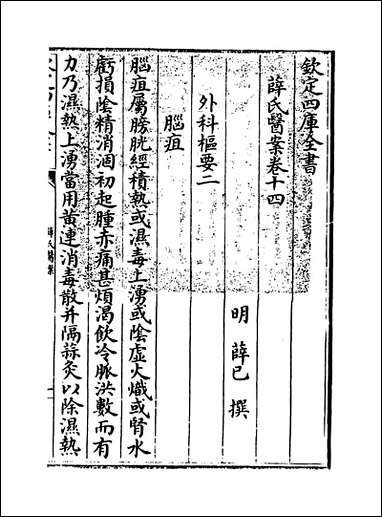 欽定四庫全書
薛氏醫案卷十四
明 薛己 撰
外科樞要二
腦疽
腦疽屬膀胱經積熱或濕毒上湧或陰虛火熾或腎水
虧損陰精消涸初起腫赤痛甚煩渴飲冷脈洪數而有
力乃濕熱上湧當用黃連消毒散并隔蒜灸以除濕熱
薛氏醫案